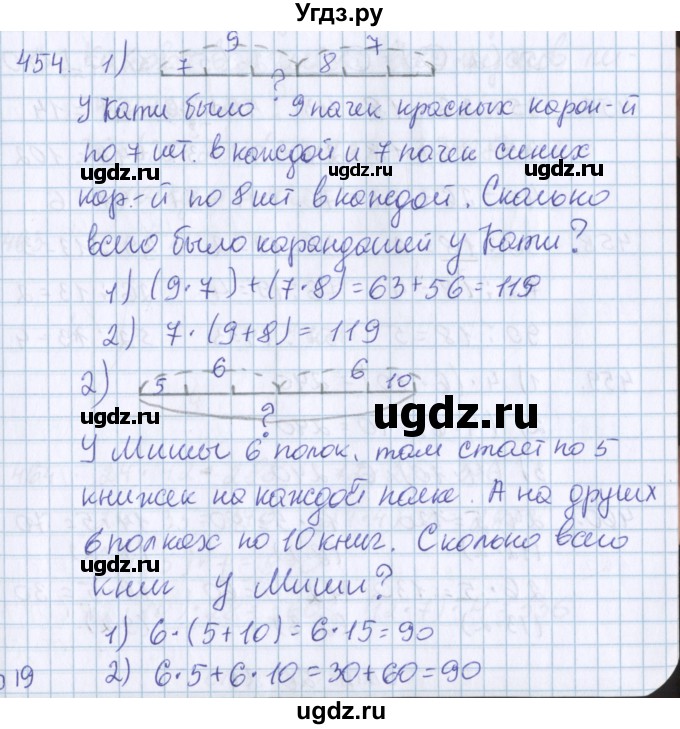 Угдз.ру
454. 1) 7 9 8 7
?
У Кати было 9 пачек красных каран-й
по 7 шт. в каждой и 7 пачек синих
ugdz.ru ugdz.ru
кар-й по 8 шт в каждой. Сколько
всего было карандашей у Кати?
1) (9·7)+(7·8)=63+56=119
2) 7·(9+8)=119
2) 5 6 6 10
ugdz.ru ugdz.ru
?
У Мишы 6 полок, там стоит по 5
книжек на каждой полке. А на других
6 полках по 10 книг. Сколько всего
ugdz.ru ugdz.ru
книг у Миши?
1) 6·(5+10)=6·15=90
19 2) 6·5+6·10=30+60=90
ugdz.ru ugdz.ru